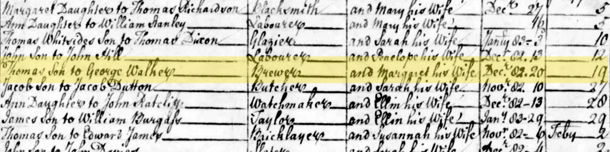 Margaret Daughter to Thomas Richardson Blacksmith and Mary his Wife Decr 27 5
Ann Daughter to William Stanley Labourer and Mary his Wife
Thomas Whitsides Son to Thomas Dixon Glazier and Sarah his Wife Janry 83 - 5 10
John Son to John Labourer and Penelope his Wife Decr 82. 13 12
Thomas Son to George Walker Brewer and Margaret his Wife Decr 82. 20 19
Jacob Son to Jacob Dutton Butcher and Sarah his Wife Novr 82. 10 27
Ann Daughter to John Ratcliff Watchmaker and Ellin his Wife Decr 82 - 13 26
James Son to William Burgass Taylor and Ellin his Wife Jany 83 - 29 29
Thomas Son to Edward James Bricklayer and Susannah his Wife Novr 82 - 6 Feby 2
John Son to John Davies and Sarah his Wife Decr 82 2